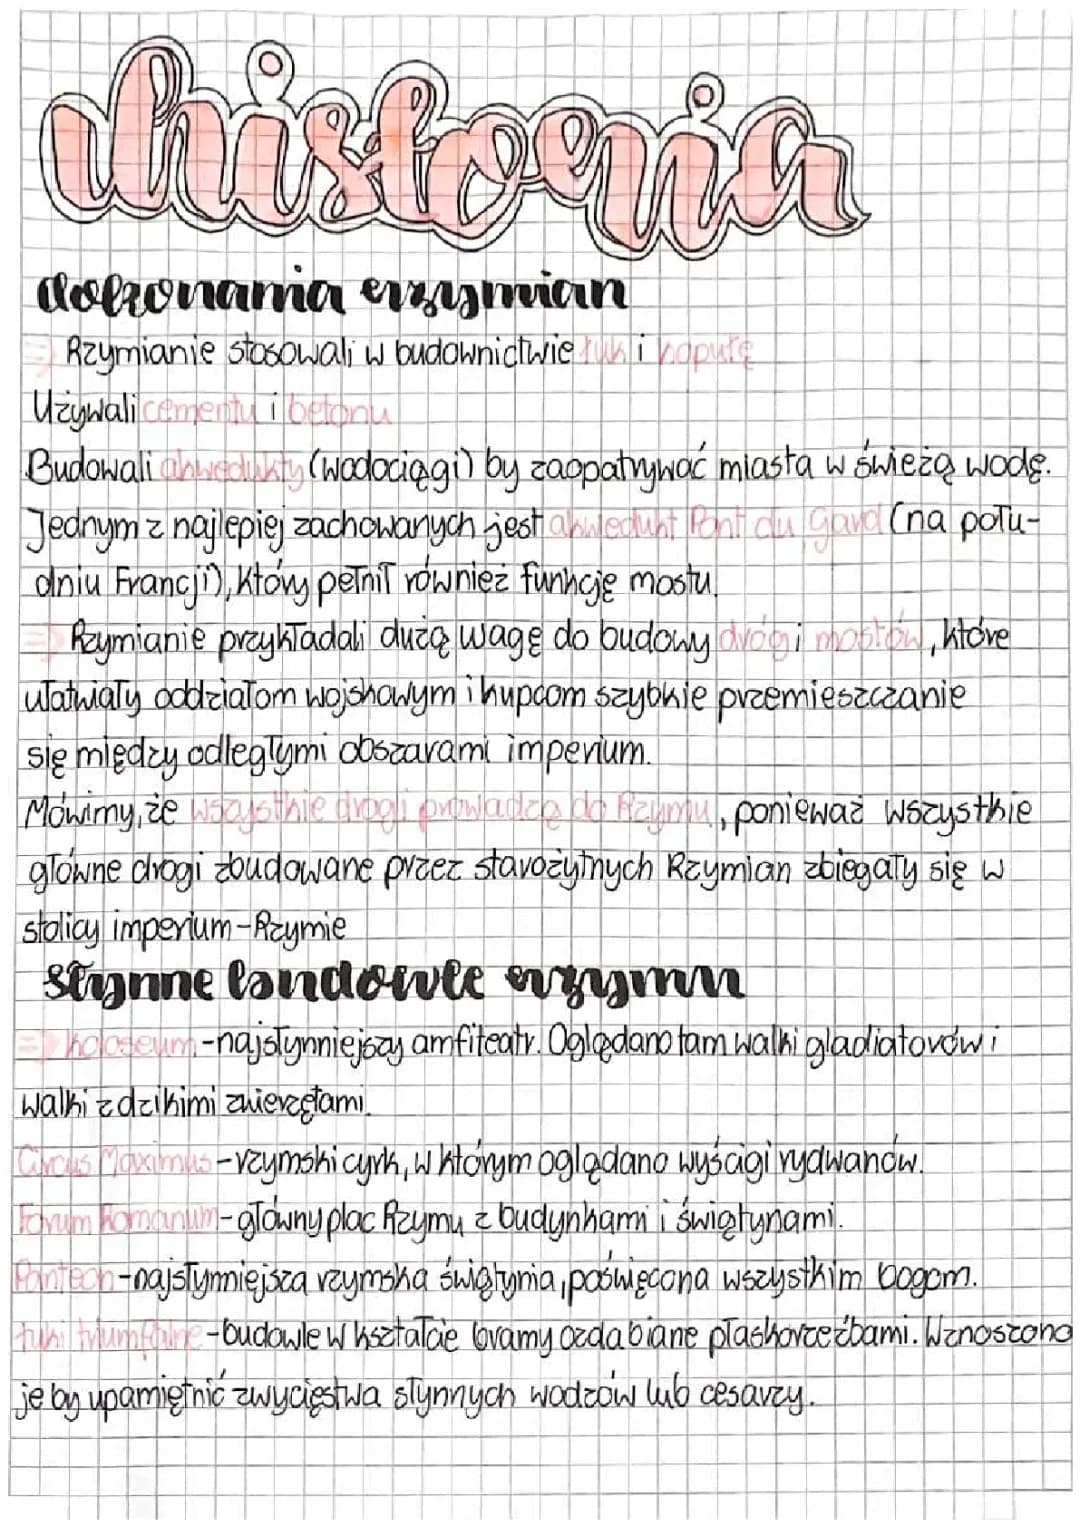 historia
dokonania rzymian
=> Rzymianie stosowali w budownictwie łuk i kopułę
Używali cementu i betonu
Budowali akwedukty (wodociągi) by zaopatrywać miasta w świeżą wodę.
Jednym z najlepiej zachowanych jest akwedukt Pont du Gard (na połu-
dniu Francji), który pełnił również funkcję mostu.
=> Rzymianie przykładali dużą wagę do budowy dróg i mostów, które
ułatwiały oddziałom wojskowym i kupcom szybkie przemieszczanie
się między odległymi obszarami imperium.
Mówimy, że wszystkie drogi prowadzą do Rzymu, ponieważ wszystkie
główne drogi zbudowane przez starożytnych Rzymian zbiegały się w
stolicy imperium-Rzymie
słynne budowle rzymu
=> Koloseum-najsłynniejszy amfiteatr. Oglądano tam walki gladiatorów i
walki z dzikimi zwierzętami.
Circus Maximus-rzymski cyrk, w którym oglądano wyścigi rydwanów.
Forum Romanum-główny plac Rzymu z budynkami i świątynami.
Panteon-najsłynniejsza rzymska świątynia, poświęcona wszystkim bogom.
Łuki triumfalne-budowle w kształcie bramy ozdabiane płaskorzeźbami. Wznoszono
je by upamiętnić zwycięstwa słynnych wodzów lub cesarzy.